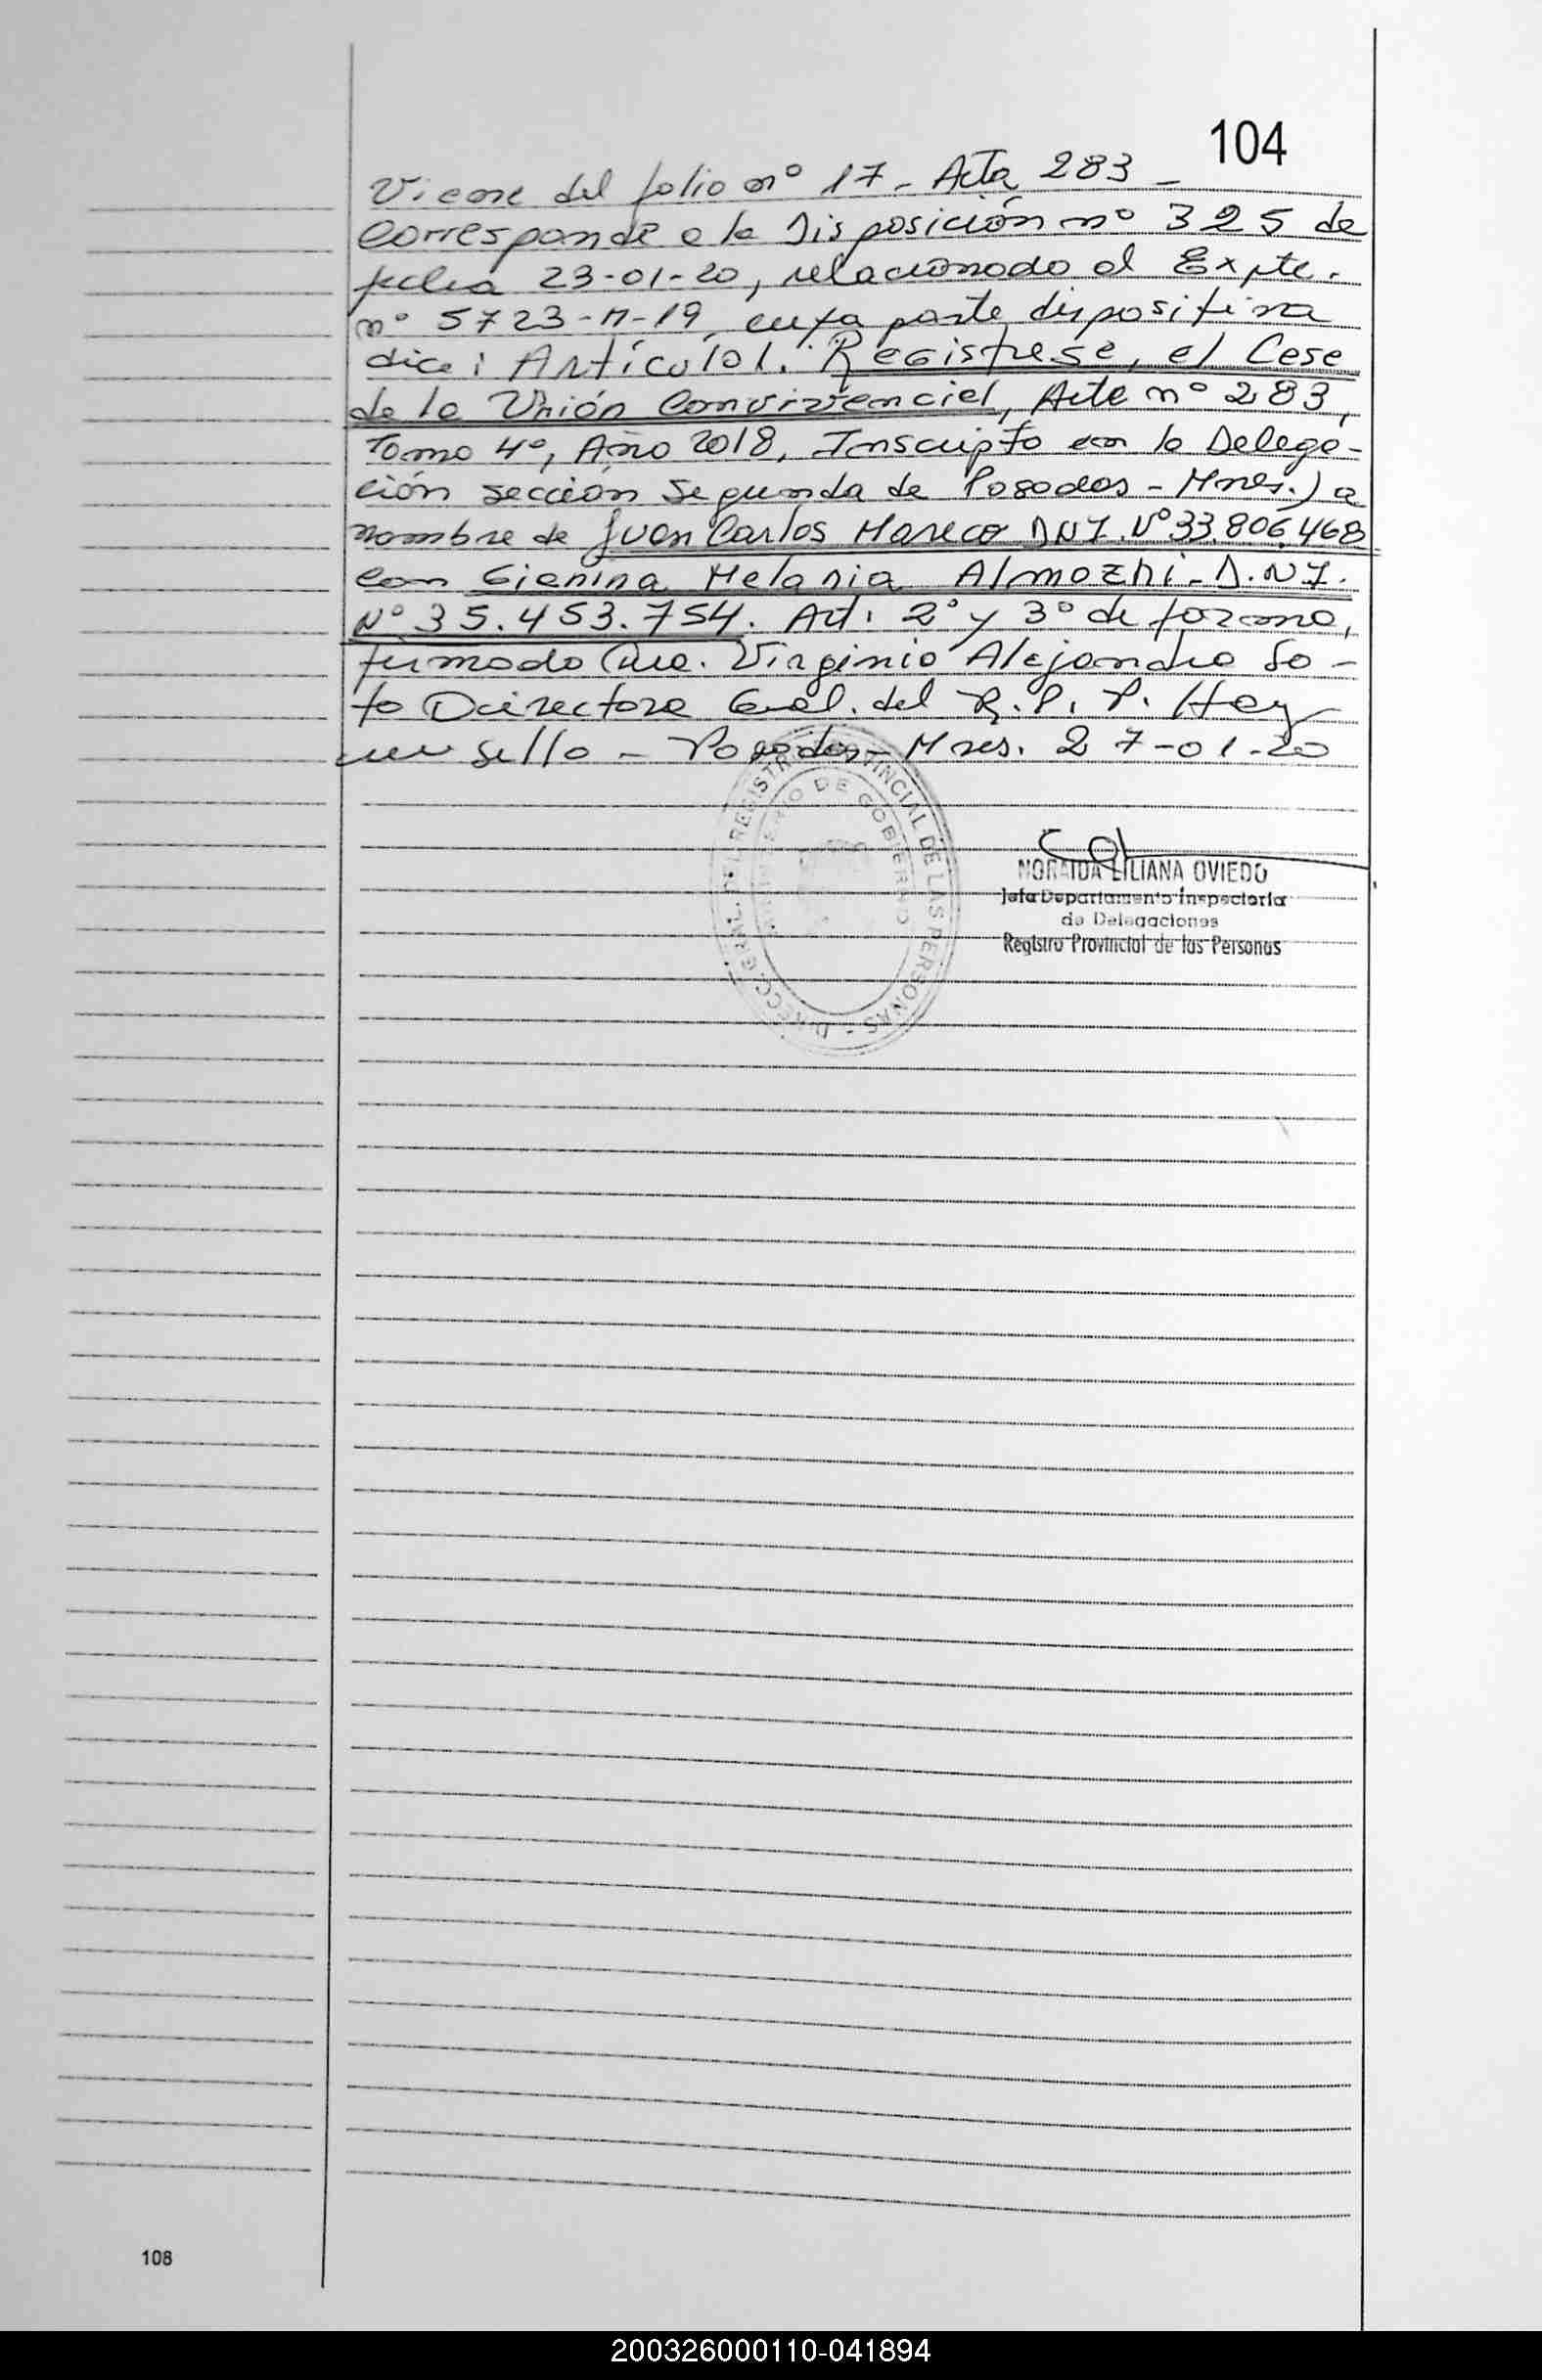 104
Viene del folio nº 17 - Acta 283 -
Corresponde a la Disposición nº 325 de
fecha 23-01-20, relacionado al Expte.
nº 5723-M-19, cuya parte dispositiva
dice: Artículo 1. Regístrese, el Cese
de la Unión Convivencial, Acta nº 283,
Tomo 4º, Año 2018, Inscripto en la Delega-
ción sección Segunda de Posadas - Mnes.) a
nombre de Juan Carlos Mareco DNI. Nº 33.806.468
con Gianina Melania Almozni - D.NI.
Nº 35.453.754. Art. 2º y 3º de forma,
firmado Dra. Virginia Alejandra So-
to Directora Gral. del R.P.P. Hay
un sello - Posadas - Mnes. 27-01-20
DIRECC. GRAL. DEL REGISTRO PROVINCIAL DE LAS PERSONAS -
MINISTERIO DE GOBIERNO
NORAIDA LILIANA OVIEDO
Jefa Departamento Inspectoría
de Delegaciones
Registro Provincial de las Personas
108
200326000110-041894